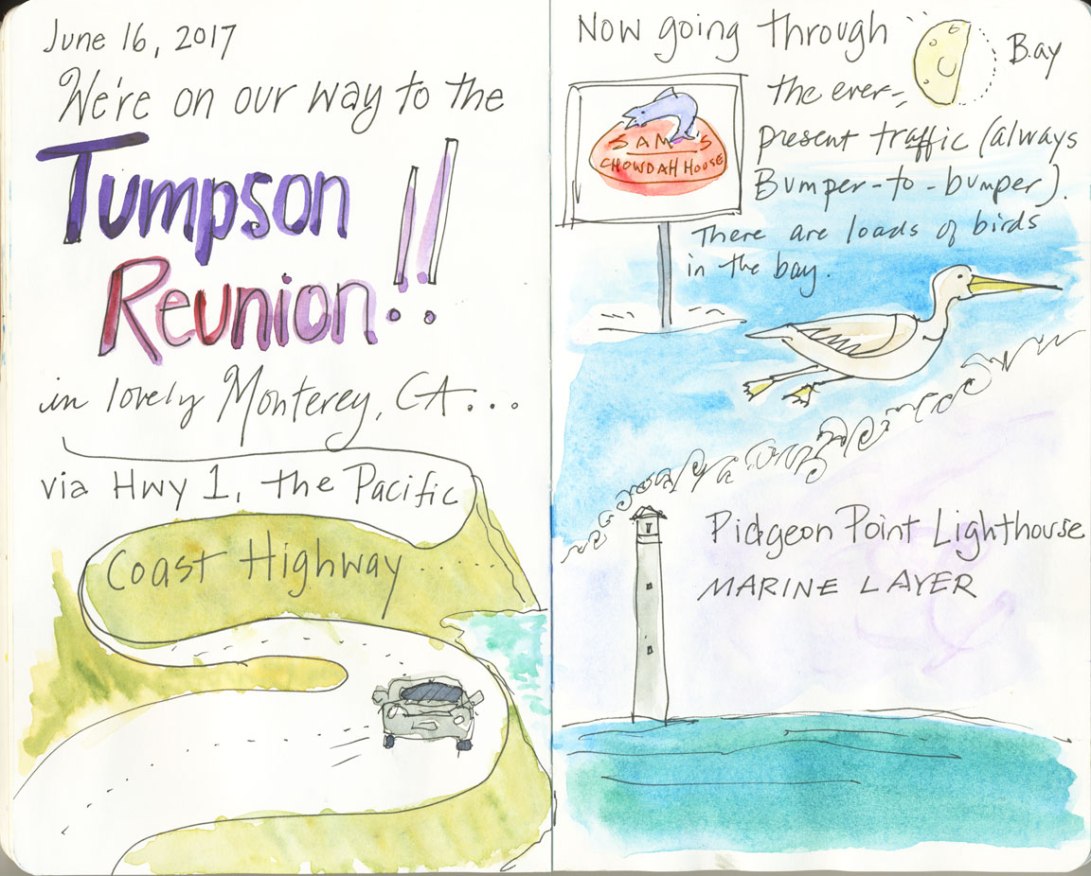 June 16, 2017
We're on our way to the
Tumpson
Reunion!!
in lovely Monterey, CA...
via Hwy 1, the Pacific
Coast Highway......
Now going through
Bay
the ever-
present traffic (always
Bumper-to-bumper).
There are loads of birds
in the bay.
SAM'S
CHOWDAH HOUSE
Pidgeon Point Lighthouse
MARINE LAYER